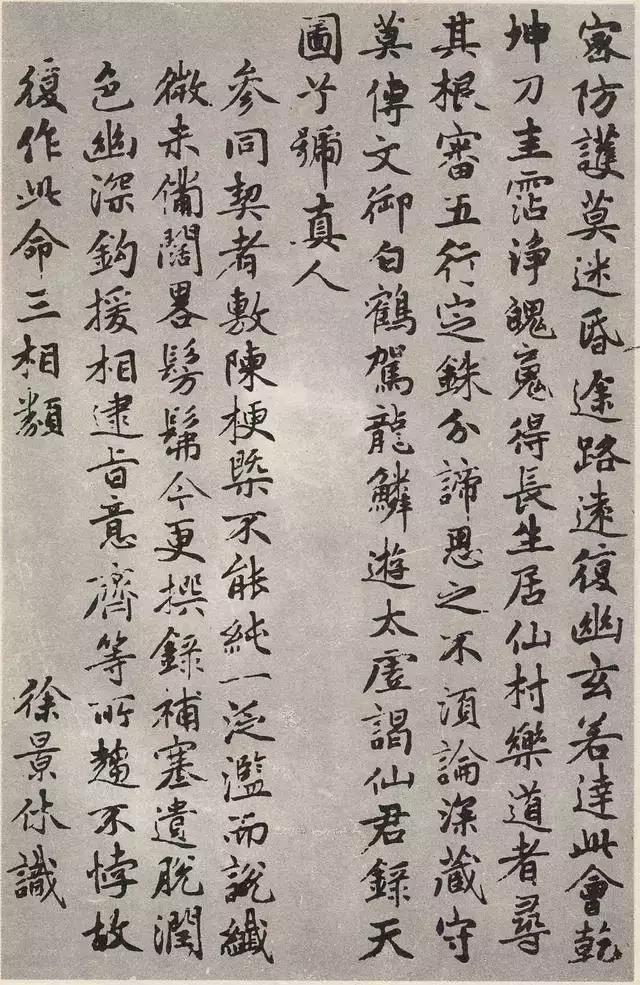 密防護莫迷昏途路遠復幽玄若達此會乾
坤刀圭霑淨魄魂得長生居仙村樂道者尋
其根審五行定銖分諦思之不須論深藏守
莫傳文御白鶴駕龍鱗遊太虛謁仙君錄天
圖兮號真人
參同契者敷陳梗槩不能純一泛濫而說纖
微未備闊畧髣髴今更撰錄補塞遺脫潤
色幽深鈎援相逮旨意齊等所趨不悖故
復作此命三相類
徐景休識